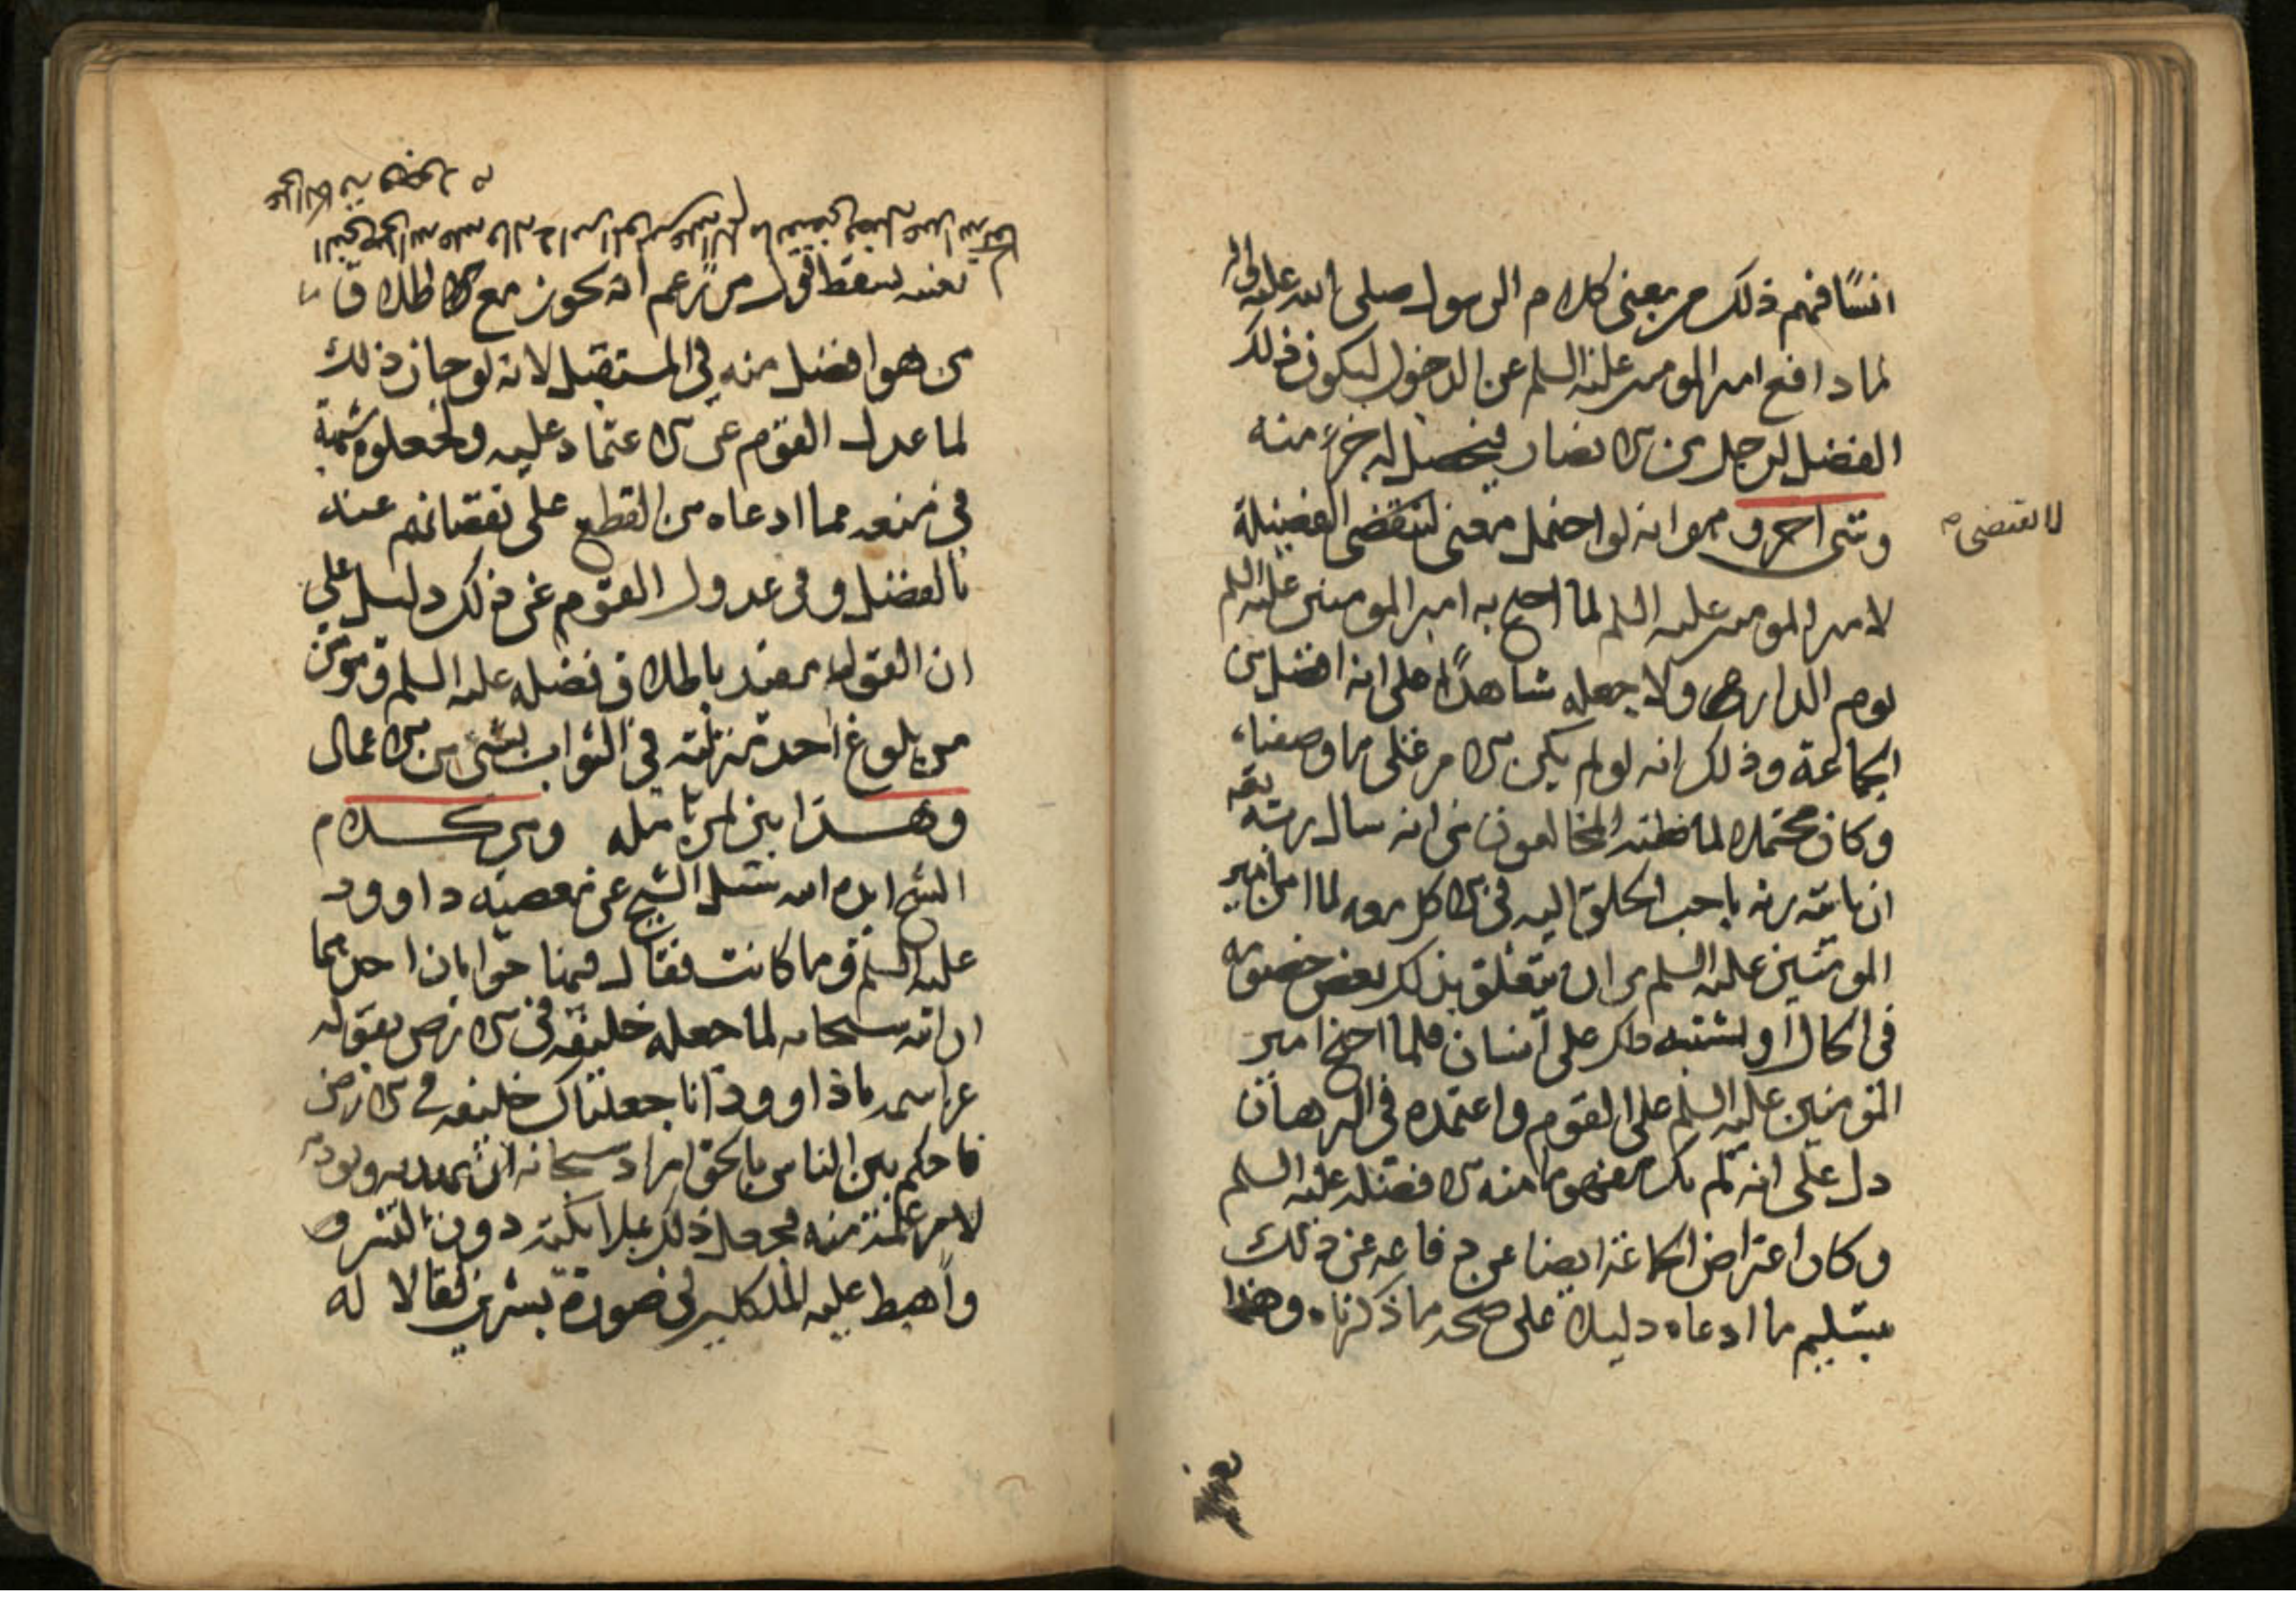 انسًا فهم ذلك من معنى كلام الرسول صلى الله عليه واله
لما دافع امير المومنين عليه السلم عن الدخول ليكون ذلك
الفضل لرجل من الانصار فيحصل له جزء منه
وشى اخر وهو انه لو احتمل معنى لا يقتضى الفضيلة
لا يقتضى
لامير المومنين عليه السلم لما احتج به امير المومنين عليه السلم
يوم الدار ولا جعله شاهدًا على انه افضل من
الجماعة وذلك انه لو لم يكن الامر على ما وصفناه
وكان محتملا لما ظنه المخالفون من انه سال ربه
ان ياتيه باحب الخلق اليه فى الاكل معه لما امن امير
المومنين عليه السلم من ان يتعلق بذلك بعض خصومه
فى الحال او يشتبه ذلك على انسان فلما احتج امير
المومنين عليه السلم على القوم واعتمده فى البرهان
دل على انه لم يكن مفهوما منه الا فضله عليه السلم
وكان اعراض الجماعة ايضا عن دفاعه عن ذلك
بتسليم ما ادعاه دليلا على صحة ما ذكرناه وهذا
بعينه
بعينه يسقط قول من زعم انه يجوز مع الاطلاق
من هو افضل منه فى المستقبل لانه لو جاز ذلك
لما عدل القوم عن الاعتماد عليه ولجعلوه شبهة
فى منعه مما ادعاه من القطع على نقصانهم عنه
بالفضل وفى عدول القوم عن ذلك دليل على
ان القول مفيد باطلاق فضله عليه السلم ومومن
من بلوغ احد منزلته فى الثواب بشى من الاعمال
وهذا بين لمن تامله ومن كلام
الشيخ ايده الله سئل الشيخ عن معصية داوود
عليه السلم وما كانت فقال فيها جوابان احدهما
ان الله سبحانه لما جعله خليفة فى الارض بقوله
عز اسمه يا داوود انا جعلناك خليفة فى الارض
فاحكم بين الناس بالحق اراد سبحانه ان يهذبه ويودبه
لامر علمه منه فجعل ذلك بملائكته دون البشر
واهبط عليه الملكين فى صورة بشرين فقالا له